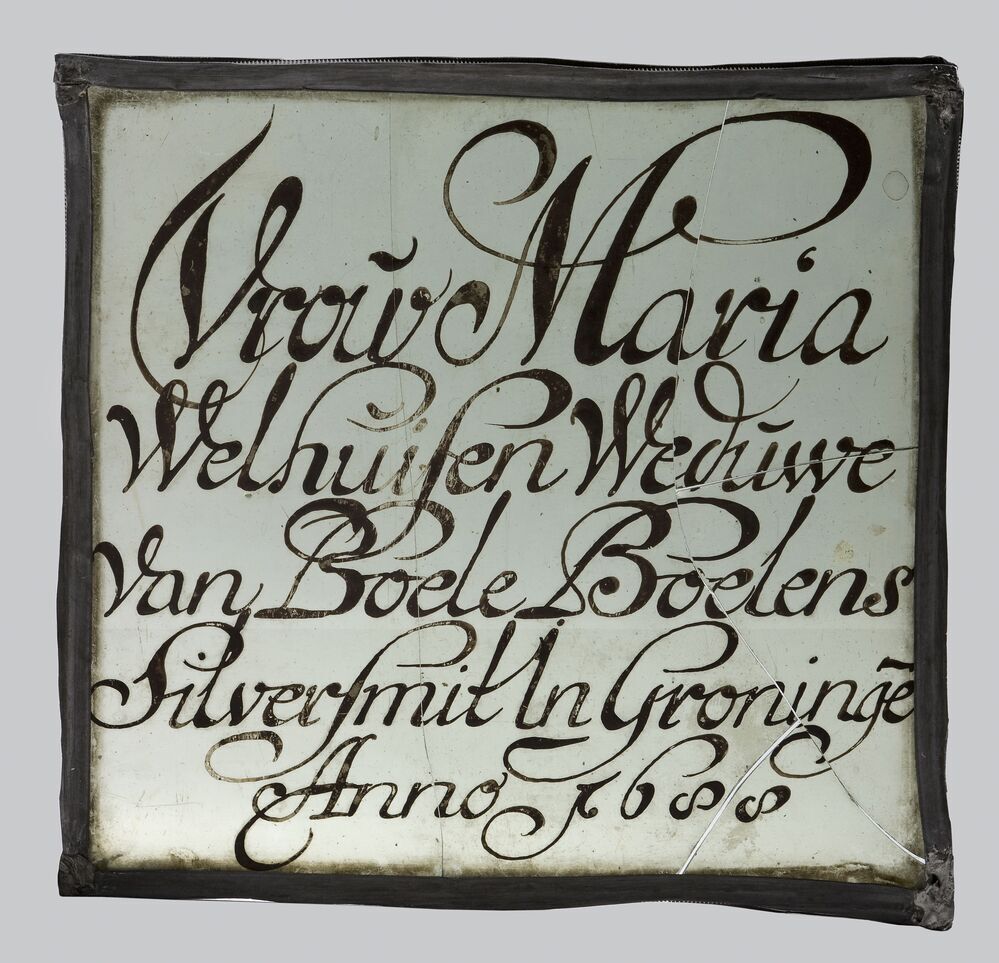 Vroŭw Maria
Welhuiſen Wedŭwe
van Boele Boelens
Silverſmit In Groningē
Anno 1688